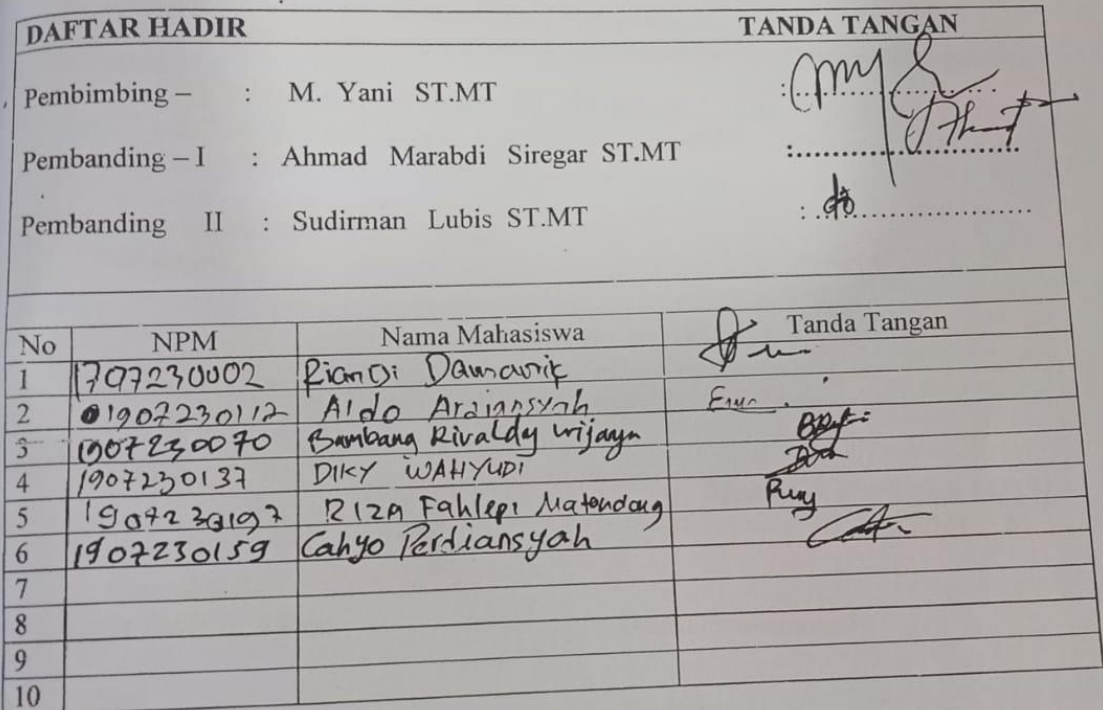 DAFTAR HADIR TANDA TANGAN
Pembimbing – : M. Yani ST.MT :
Pembanding – I : Ahmad Marabdi Siregar ST.MT :
Pembanding II : Sudirman Lubis ST.MT :
No NPM Nama Mahasiswa Tanda Tangan
1 1707230002 Riandi Damanik
2 01907230112 Aldo Ardiansyah
3 1907230070 Bambang Rivaldy wijaya
4 1907230137 DIKY WAHYUDI
5 1907230197 RIZA Fahlepi Matondang
6 1907230159 Cahyo Perdiansyah
7
8
9
10